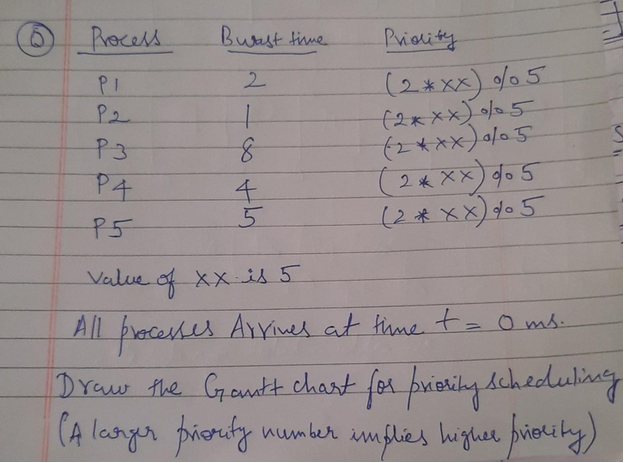 Q Process Burst time Priority
P1 2 (2*xx)%5
P2 1 (2*xx)%5
P3 8 (2*xx)%5
P4 4 (2*xx)%5
P5 5 (2*xx)%5
Value of xx is 5
All processes Arrives at time t = 0 ms.
Draw the Gantt chart for priority scheduling
(A larger priority number implies higher priority)